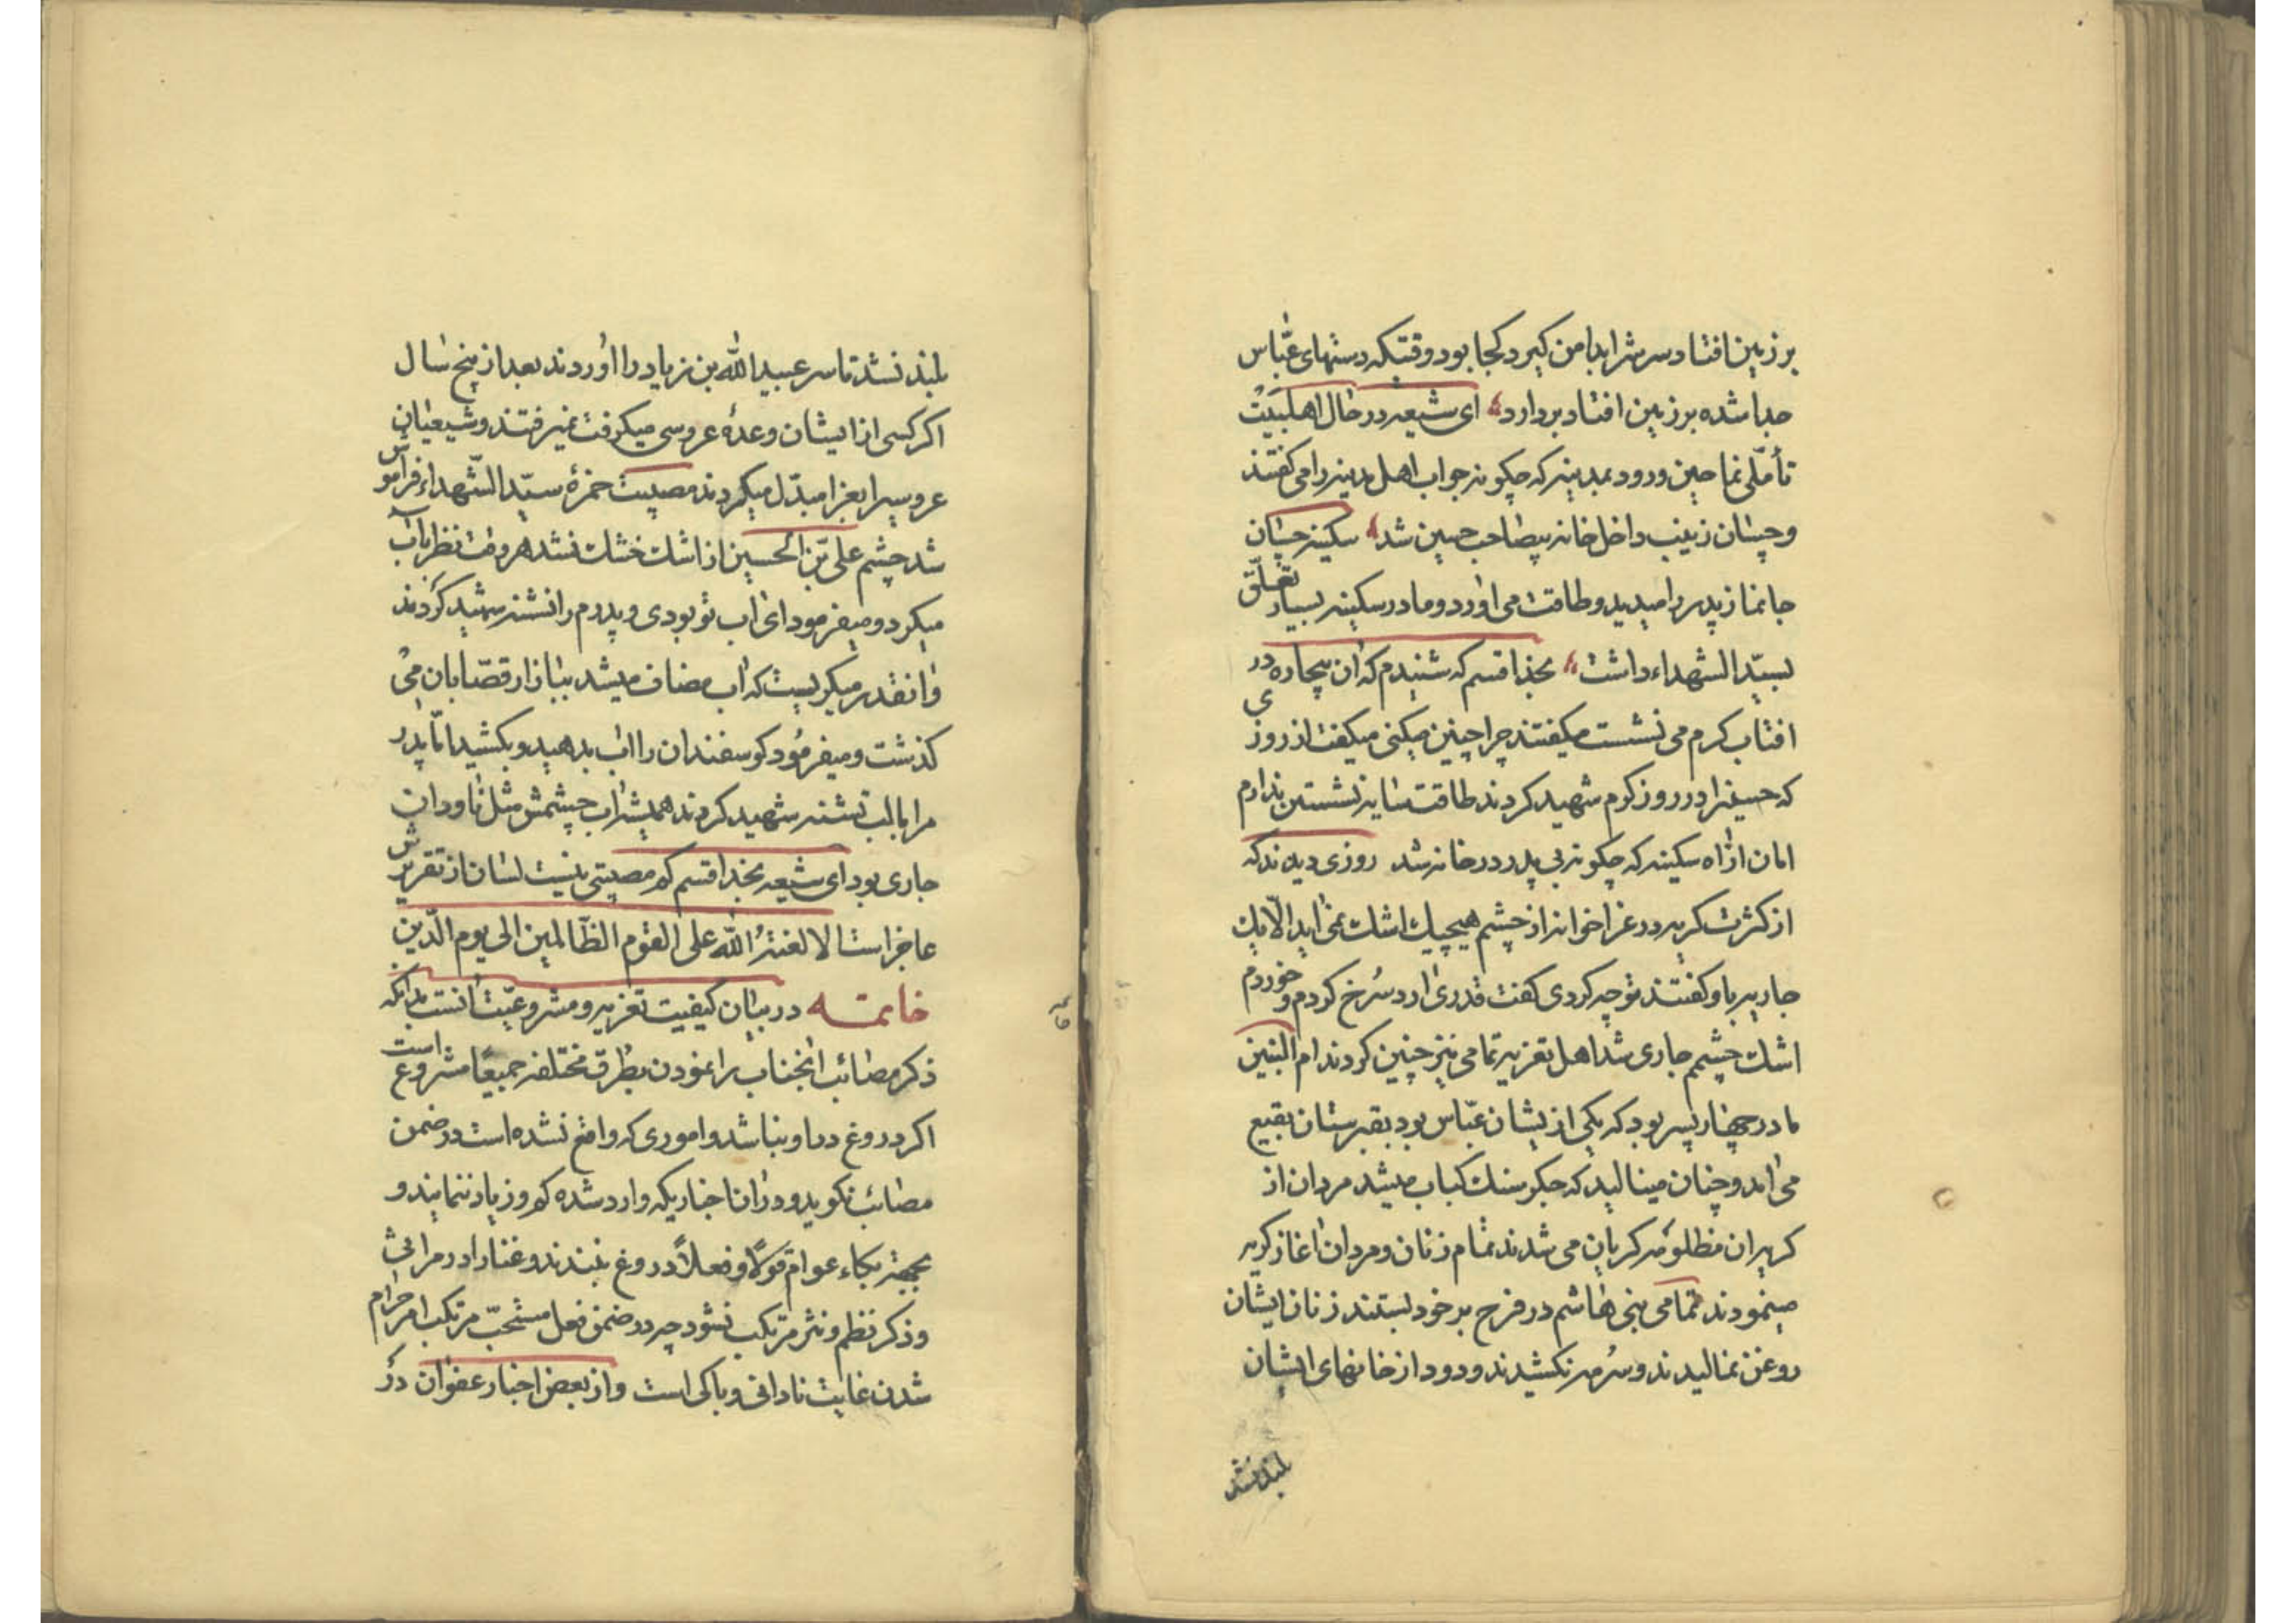 بر زمین افتاد سرش را بدامن کیرد کجا بود وقتیکه دستهای عبّاس
جدا شده بر زمین افتاد بردارد ای شیعه در حال اهلبیت
تأملّی نما حین ورود بمدینه که چکونه جواب اهل مدینه را می کفتند
و چسان زینب داخل خانه بیصاحب حسین شد سکینه چسان
جانماز پدر را میدید و طاقت می اورد و مادر سکینه بسیار تعلّق
بسیّد الشهداء داشت بخدا قسم که شنیدم که ان بیچاره در
افتاب کرم می نشست میکفتند چرا چنین میکنی میکفت از روزی
که حسینرا در روز کرم شهید کردند طاقت سایه نشستن ندارم
امان از اه سکینه که چکونه بی پدر در خانه شد روزی دیدند که
از کثرت کریه در عزاخوانه از چشم هیچیک اشک نمی اید الّا یک
جاریه باو کفتند تو چه کردی کفت قدری ارد سرخ کردم و خوردم
اشک چشمم جاری شد اهل تعزیه تمامی نیز چنین کردند ام البنین
مادر چهار پسر بود که یکی از یشان عبّاس بود بقبرستان بقیع
می امد و چنان مینالید که جکر سنک کباب میشد مردان از
کریه ان مظلومه کریان می شدند تمام زنان و مردان اغاز کریه
مینمودند تمامی بنی هاشم در فرح بر خود بستند زنان ایشان
روغن نمالیدند و سرمه نکشیدند و دود از خانهای ایشان
بلند نشد
بلند نشد تا سر عبید الله بن زیاد را اوردند بعد از پنج سال
اکر کسی از ایشان وعدۀ عروسی میکرفت نمیرفتند و شیعیان
عروسیرا بعزا مبدّل میکردند مصیبت حمزۀ سیّد الشّهداء فراموش
شد چشم علی بن الحسین از اشک خشک نشد هر وقت نظر باب
میکرد و میفرمود ای اب تو بودی و پدرم را تشنه شهید کردند
و انقدر میکریست که اب مضاف میشد ببازار قصّابان می
کذشت و میفرمود کوسفندان را اب بدهید و بکشید امّا پدر
مرا با لب تشنه شهید کردند همیشه اب چشمش مثل ناودان
جاری بود ای شیعه بخدا قسم کم مصیبتی نیست لسان از تقریرش
عاجز است الا لعنة الله علی القوم الظّالمین الی یوم الدّین
خاتمه در بیان کیفیت تعزیه و مشروعیّت انست بدانکه
ذکر مصائب انجناب را نمودن بطرق مختلفه جمیعًا مشروع است
اکر دروغ در او نباشد و اموری که واقع نشده است در ضمن
مصائب نکوید و در ان اخباریکه وارد شده کم و زیاد ننمایند و
بجهة بکاء عوام قولًا و فعلًا دروغ نبندند و غنا را در مراثی
و ذکر نظم و نثر مرتکب نشود چه در ضمن فعل مستحبّ مرتکب امر حرام
شدن غایت نادانی و باکی است و از بعض اخبار عفوان در